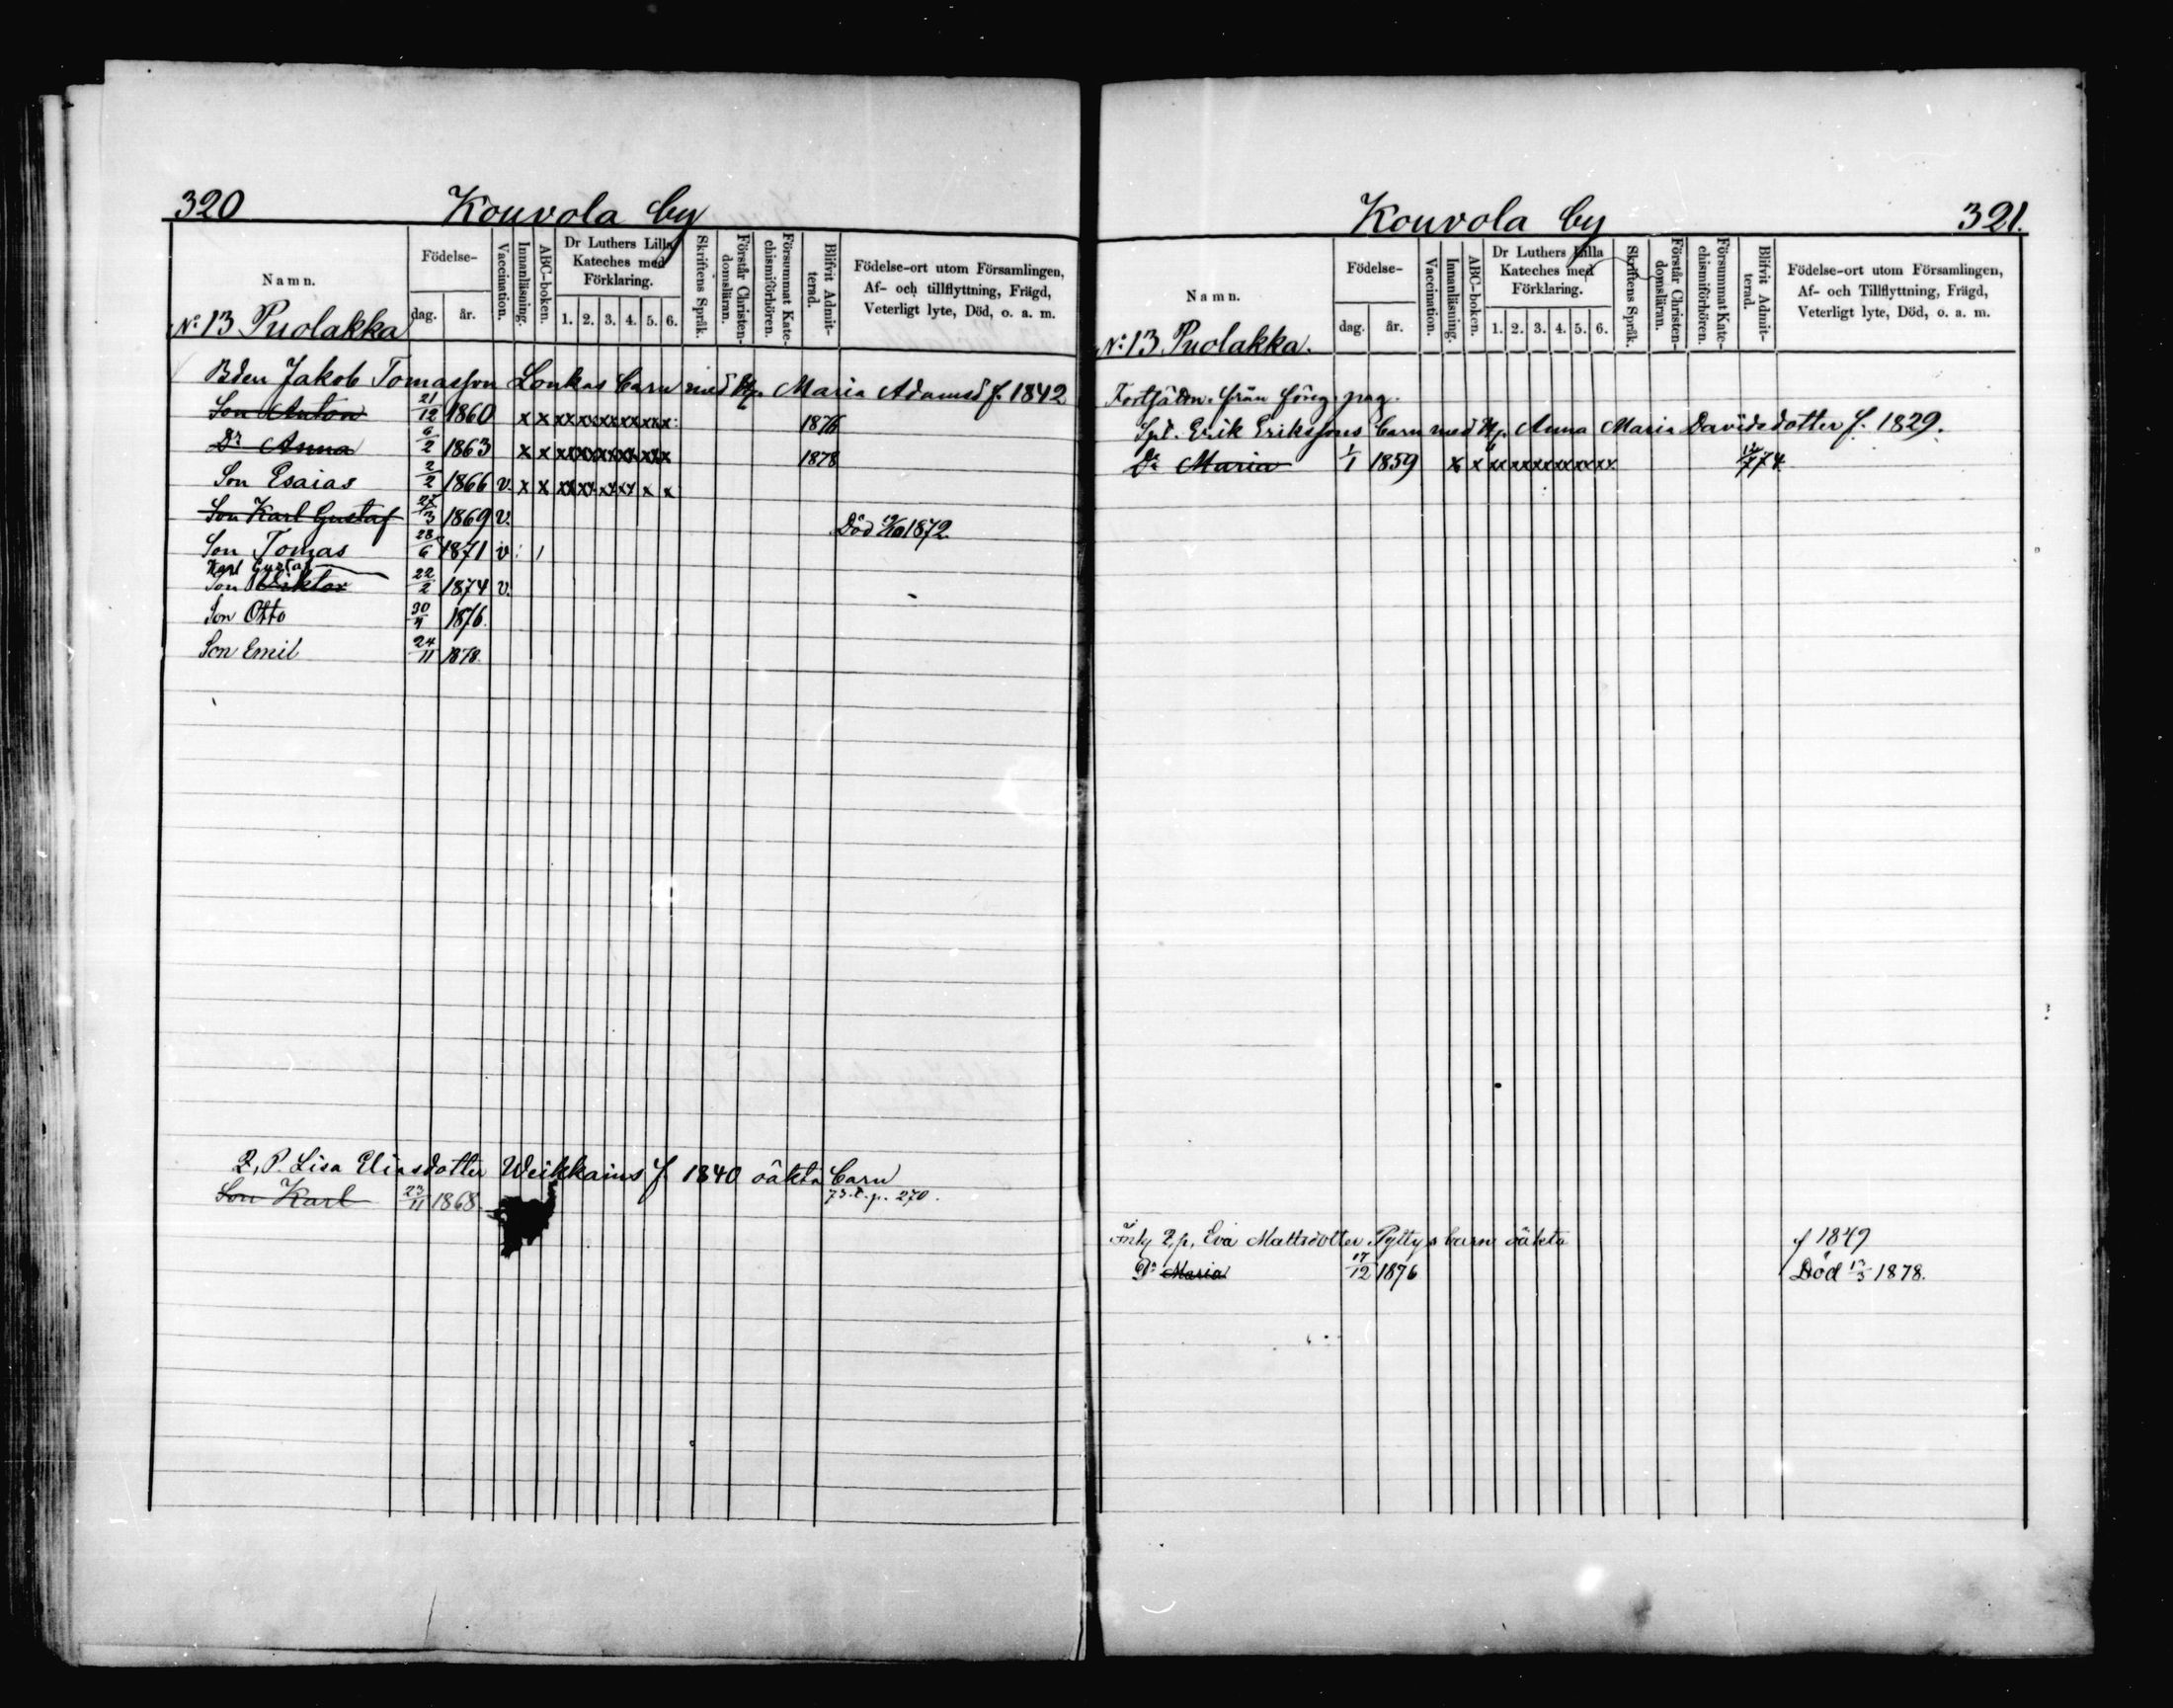 320 Kouvola by
Namn. Födelse- dag. år. Vaccination. Innanläsning. ABC-boken. Dr Luthers Lilla Kateches med Förklaring. 1. 2. 3. 4. 5. 6. Skriftens Språk. Förstår Christen-domslänn. Försummat Kate-chismiförhören. Blifvit Admit-terad. Födelse-ort utom Församlingen, Af- och tillflyttning, Frägd, Veterligt lyte, Död, o. a. m.
No 13 Puolakka
Bden Jakob Tomasson Lonkas barn med Hu. Maria Adamsd f. 1842
Son Anton 21/12 1860 x x xx xx xx xx xx xx 1876
Dr Anna 6/2 1863 x x xx xx xx xx xx xx 1878
Son Esaias 2/2 1866 v. x x xx xx xx xx x x
Son Karl Gustaf 27/3 1869 v. Död 1872.
Son Tomas 28/6 1871 v
Karl Gustaf
Son Viktor 22/2 1874 v.
Son Otto 30 1876.
Son Emil 24/11 1878.
2, P. Lisa Eliasdotter Weikkains f. 1840 oäkta barn
Son Karl 23/11 1868. p. 270.
Kouvola by 321.
Namn. Födelse- dag. år. Vaccination. Innanläsning. ABC-boken. Dr Luthers Lilla Kateches med Förklaring. 1. 2. 3. 4. 5. 6. Skriftens Språk. Förstår Christen-domsläran. Försummat Kate-chismiförhören. Blifvit Admit-terad. Födelse-ort utom Församlingen, Af- och Tillflyttning, Frägd, Veterligt lyte, Död, o. a. m.
No 13 Puolakka.
från föreg. pag.
Erik Erikssons barn med Hu. Anna Maria Davidsdotter f. 1829.
Dr Maria 1/1 1859 x x xx xx xx xx xx xx 74
Inh 2, p, Eva Mattsdotter Pyttys barn oäkta f 1849
Dr Maria 17/12 1876 Död 1878.